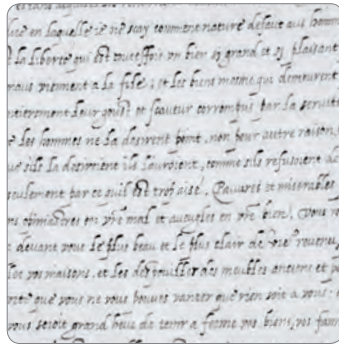 en laquelle ie ne scay comment nature defaut aus homm
t la liberté qui est toutesfois vn bien si grand et si plaisant
maus viennent a la file ; et les biens mesme qui demeurent
entierement leur goust et scaueur corrompus par la seruitu
e les hommes ne la desirent point, non pour autre raison,
ue sils la desiroient ils l'auroient, comme sils refusoient de
seulement par ce quil est trop aisé. Pauures et miserables
ns opiniastres en vre mal et aueugles en vre bien, vous
r deuant vous le plus beau et le plus clair de vre reuenu,
ller vos maisons, et les despouiller des meubles anciens et p
orte que vous ne vous pouues vanter que rien soit a vous :
vous seroit grand heur de tenir a ferme vos biens, vos fam